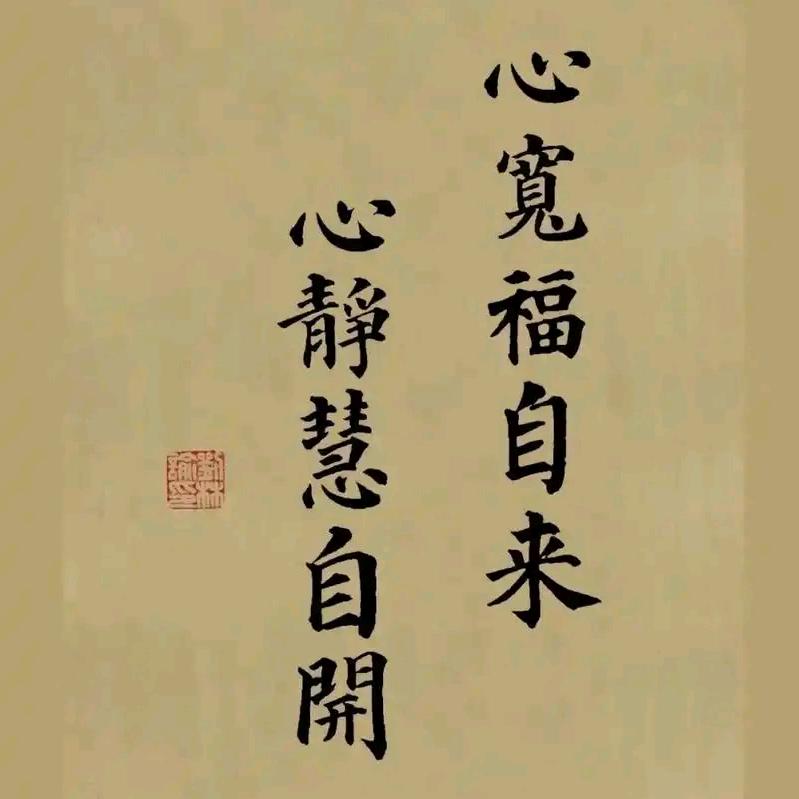 心寬福自来
心靜慧自開